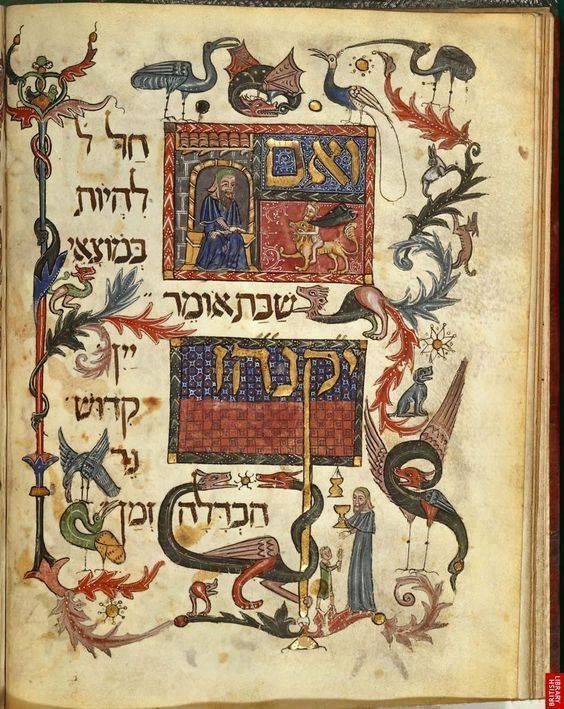 ואם
חל ל
להיות
במוצאי
שבת אומר
יקנהז
יין
קדוש
נר
הבדלה זמן
BRITISH
LIBRARY